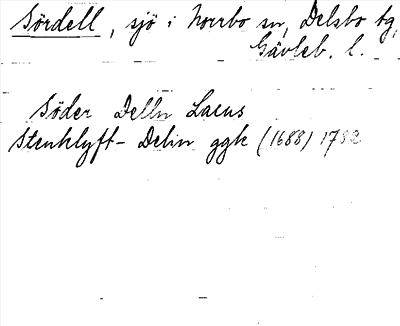 Sördell, sjö i Norrbo sn, Delsbo tg,
Gävleb. l.
Söder Delln Lacus
Stenklyft- Delin ggk (1688) 1782